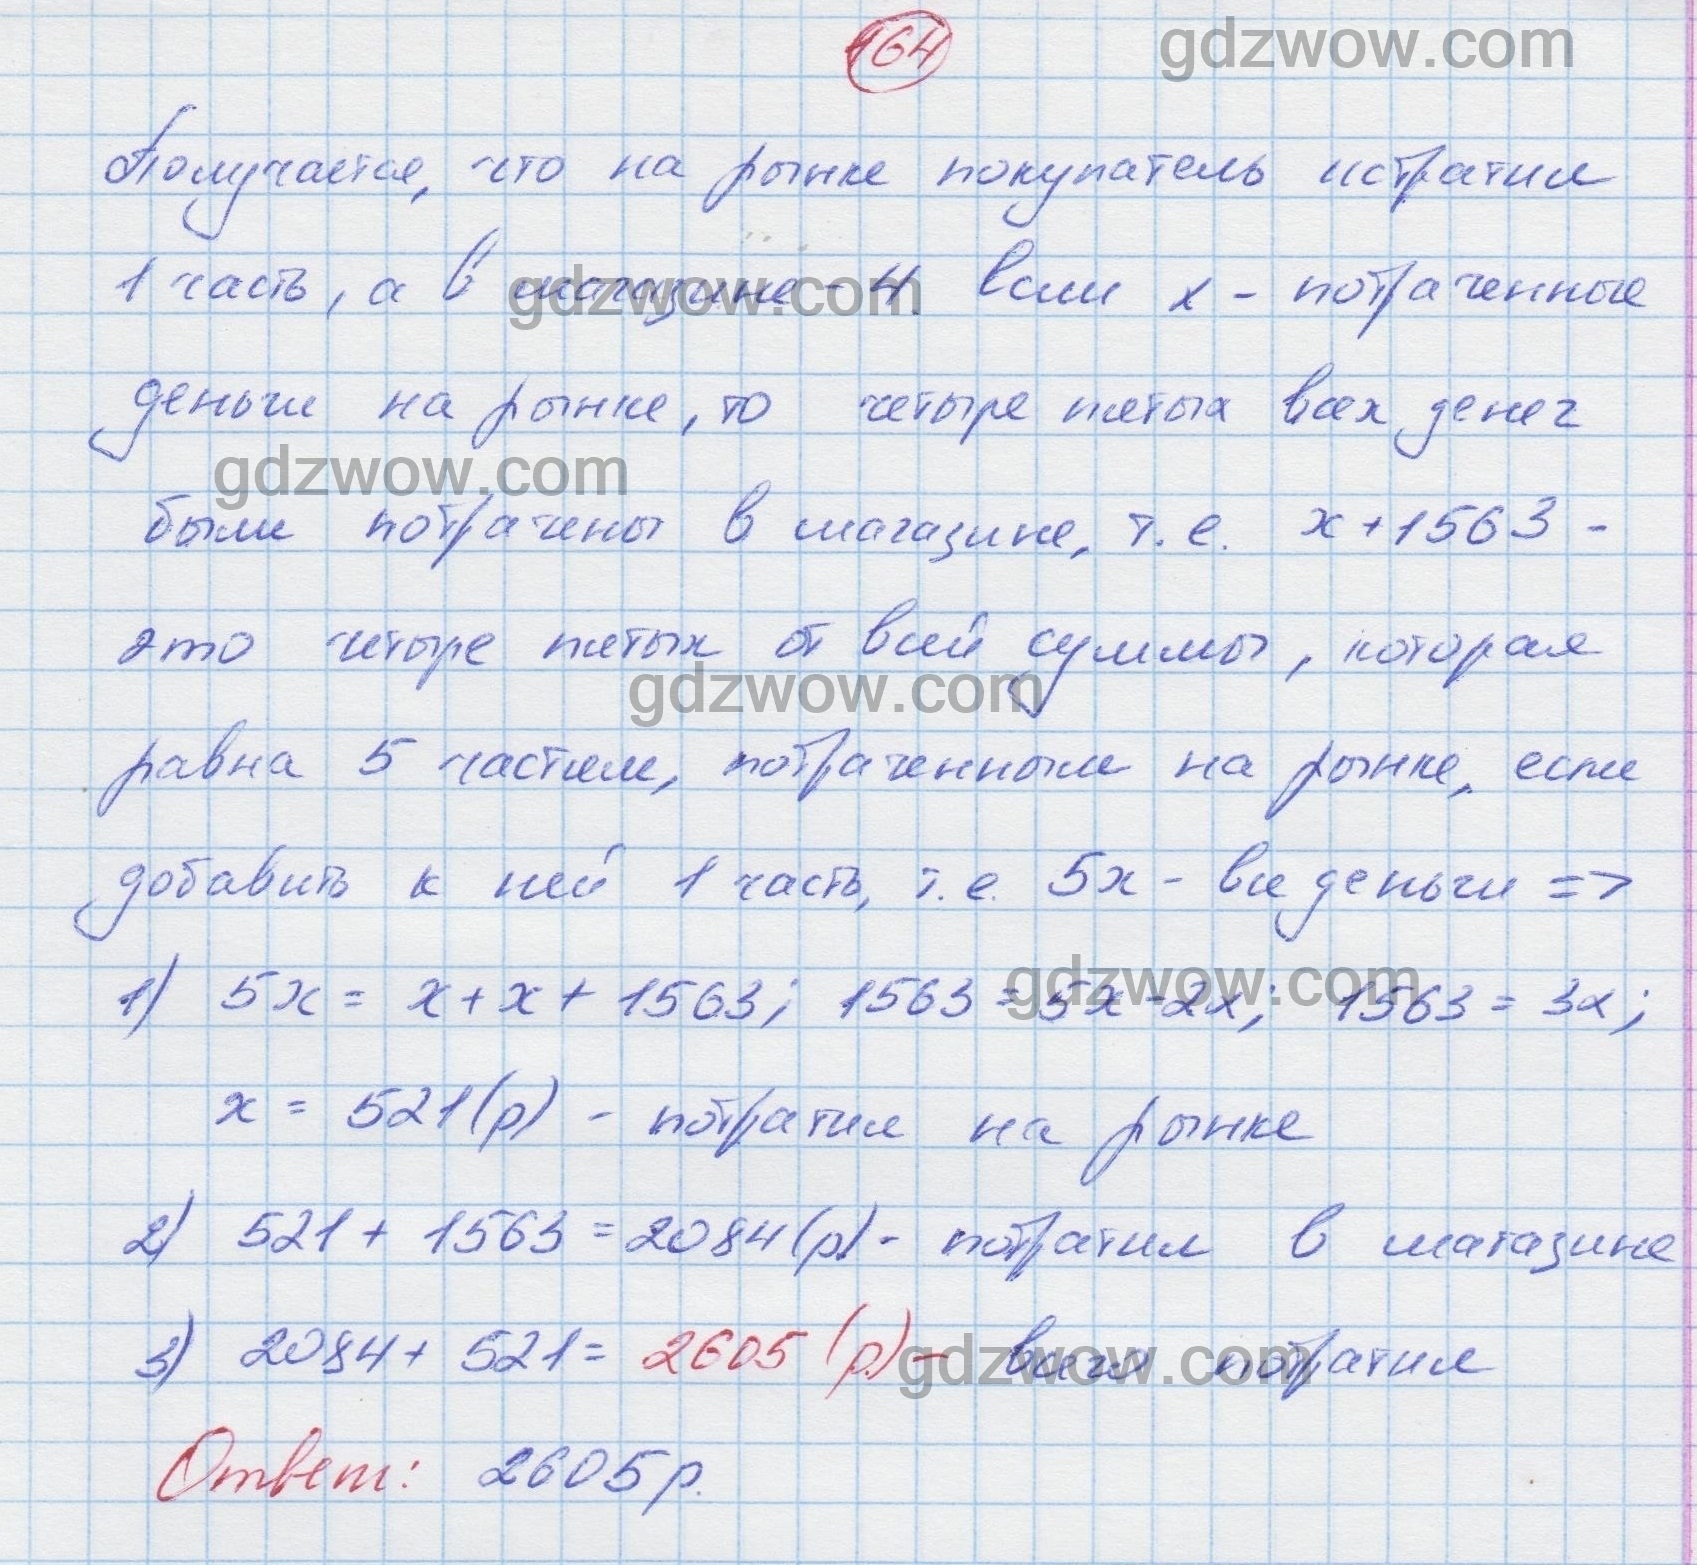 164
gdzwow.com
Получается, что на рынке покупатель истратил
1 часть, а в магазине - 4 если x - потраченные
gdzwow.com
деньги на рынке, то четыре пятых всех денег
gdzwow.com
были потрачены в магазине, т.е. x + 1563 -
это четыре пятых от всей суммы, которая
gdzwow.com
равна 5 частям, потраченным на рынке, если
добавить к ней 1 часть, т.е. 5x - все деньги =>
gdzwow.com
1) 5x = x + x + 1563; 1563 = 5x - 2x; 1563 = 3x;
x = 521 (р) - потратил на рынке
2) 521 + 1563 = 2084 (р) - потратил в магазине
3) 2084 + 521 = 2605 (р.) - всего потратил
gdzwow.com
Ответ: 2605 р.